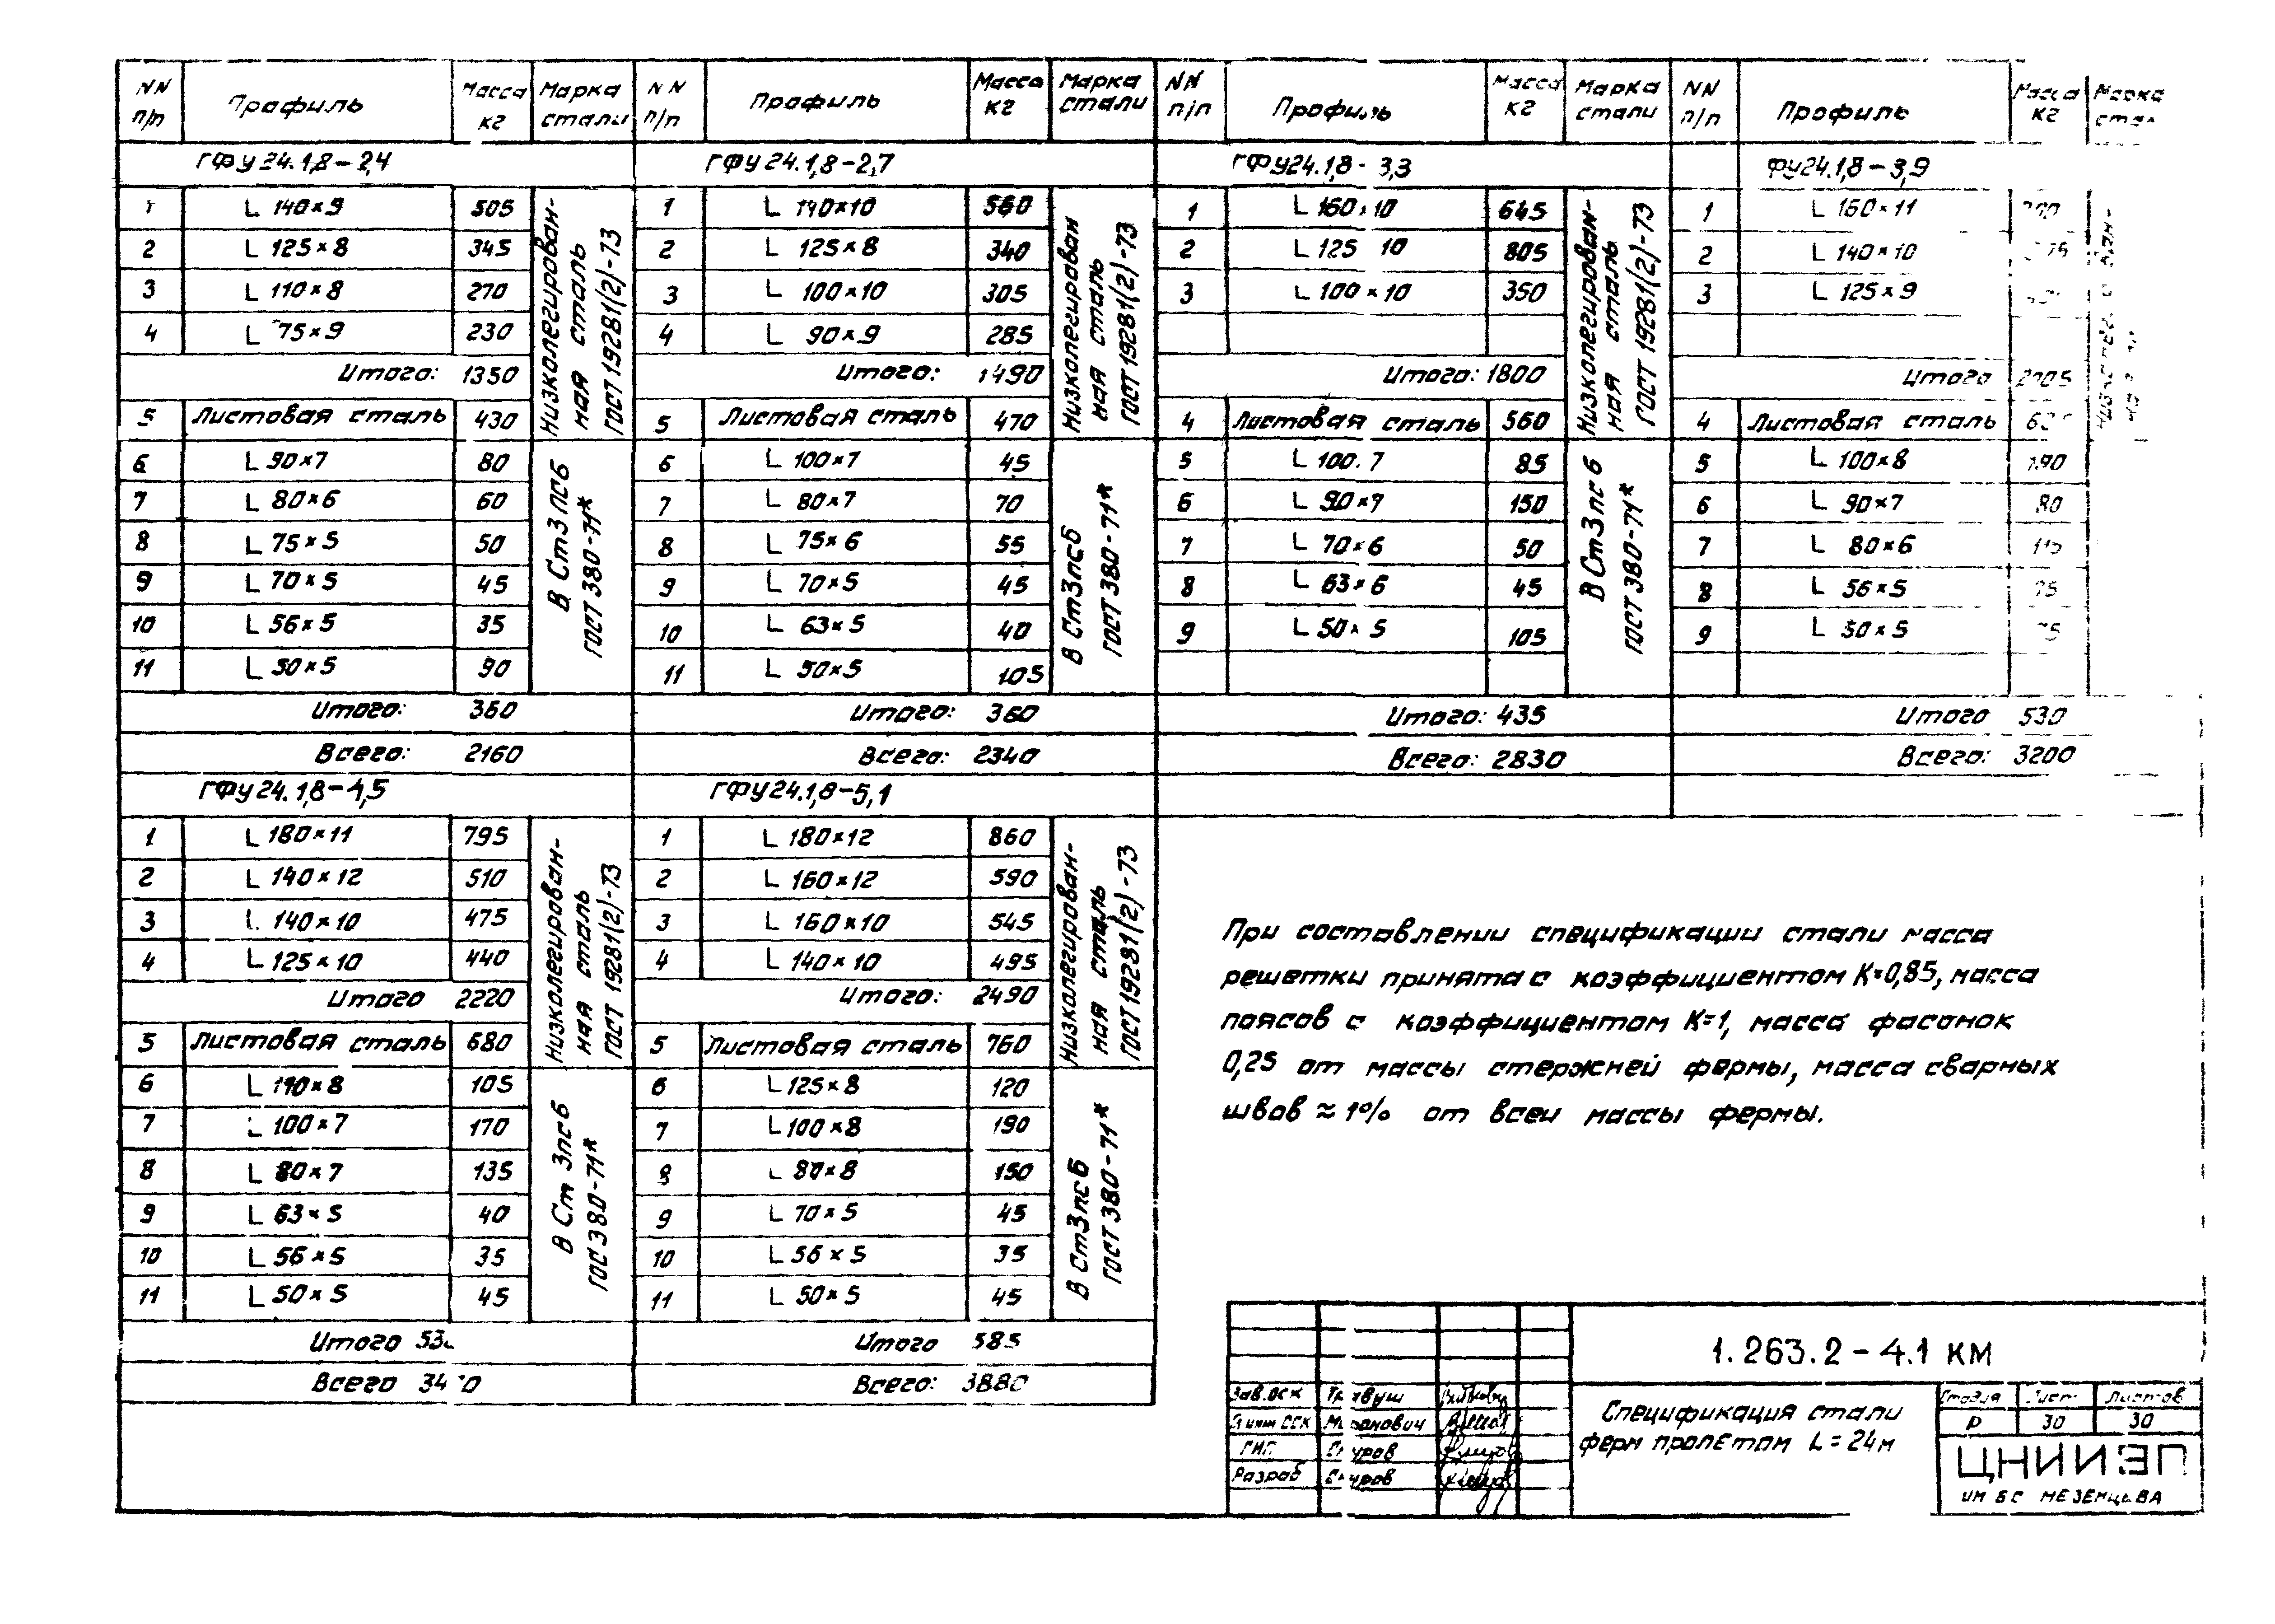 NN п/п Профиль Масса кг Марка стали NN п/п Профиль Масса кг Марка стали NN п/п Профиль Масса кг Марка стали NN п/п Профиль Масса кг Марка
ГФУ 24.1,8-2,4
1 L 140×9 505
2 L 125×8 345
3 L 110×8 270
4 L 75×9 230
Итого: 1350
5 Листовая сталь 430
Низколегированная сталь ГОСТ 19281(2)-73
6 L 90×7 80
7 L 80×6 60
8 L 75×5 50
9 L 70×5 45
10 L 56×5 35
11 L 50×5 90
В Ст3пс6 ГОСТ 380-71*
Итого: 360
Всего: 2160
ГФУ 24.1,8-2,7
1 L 140×10 560
2 L 125×8 340
3 L 100×10 305
4 L 90×9 285
Итого: 1490
5 Листовая сталь 470
Низколегированная сталь ГОСТ 19281(2)-73
6 L 100×7 45
7 L 80×7 70
8 L 75×6 55
9 L 70×5 45
10 L 63×5 40
11 L 50×5 105
В Ст3пс6 ГОСТ 380-71*
Итого: 360
Всего: 2340
ГФУ24.1,8-3,3
1 L 160×10 645
2 L 125 10 805
3 L 100×10 350
Итого: 1800
4 Листовая сталь 560
Низколегированная сталь ГОСТ 19281(2)-73
5 L 100.7 85
6 L 90×7 150
7 L 70×6 50
8 L 63×6 45
9 L 50×5 105
В Ст3пс6 ГОСТ 380-71*
Итого: 435
Всего: 2830
ФУ24.1,8-3,9
1 L 160×11
2 L 140×10
3 L 125×9
Итого
4 Листовая сталь
5 L 100×8 190
6 L 90×7 80
7 L 80×6 115
8 L 56×5
9 L 50×5
Итого 530
Всего: 3200
ГФУ 24.1,8-4,5
1 L 180×11 795
2 L 140×12 510
3 L 140×10 475
4 L 125×10 440
Итого 2220
5 Листовая сталь 680
Низколегированная сталь ГОСТ 19281(2)-73
6 L 110×8 105
7 L 100×7 170
8 L 80×7 135
9 L 63×5 40
10 L 56×5 35
11 L 50×5 45
В Ст 3пс6 ГОСТ 380-71*
Итого
Всего
ГФУ 24.1,8-5,1
1 L 180×12 860
2 L 160×12 590
3 L 160×10 545
4 L 140×10 495
Итого: 2490
5 Листовая сталь 760
Низколегированная сталь ГОСТ 19281(2)-73
6 L 125×8 120
7 L 100×8 190
8 L 80×8 150
9 L 70×5 45
10 L 56×5 35
11 L 50×5 45
В Ст3пс6 ГОСТ 380-71*
Итого 585
Всего: 3880
При составлении спецификации стали масса
решетки принята с коэффициентом К=0,85, масса
поясов с коэффициентом К=1, масса фасонок
0,25 от массы стержней фермы, масса сварных
швов ≈ 1% от всей массы фермы.
1.263.2-4.1 КМ
Зав.ОСК
ГИП
Разраб
Спецификация стали
ферм пролетом L=24м
Стадия Лист Листов
Р 30 30
ЦНИИЭП
ИМ БС МЕЗЕНЦЕВА